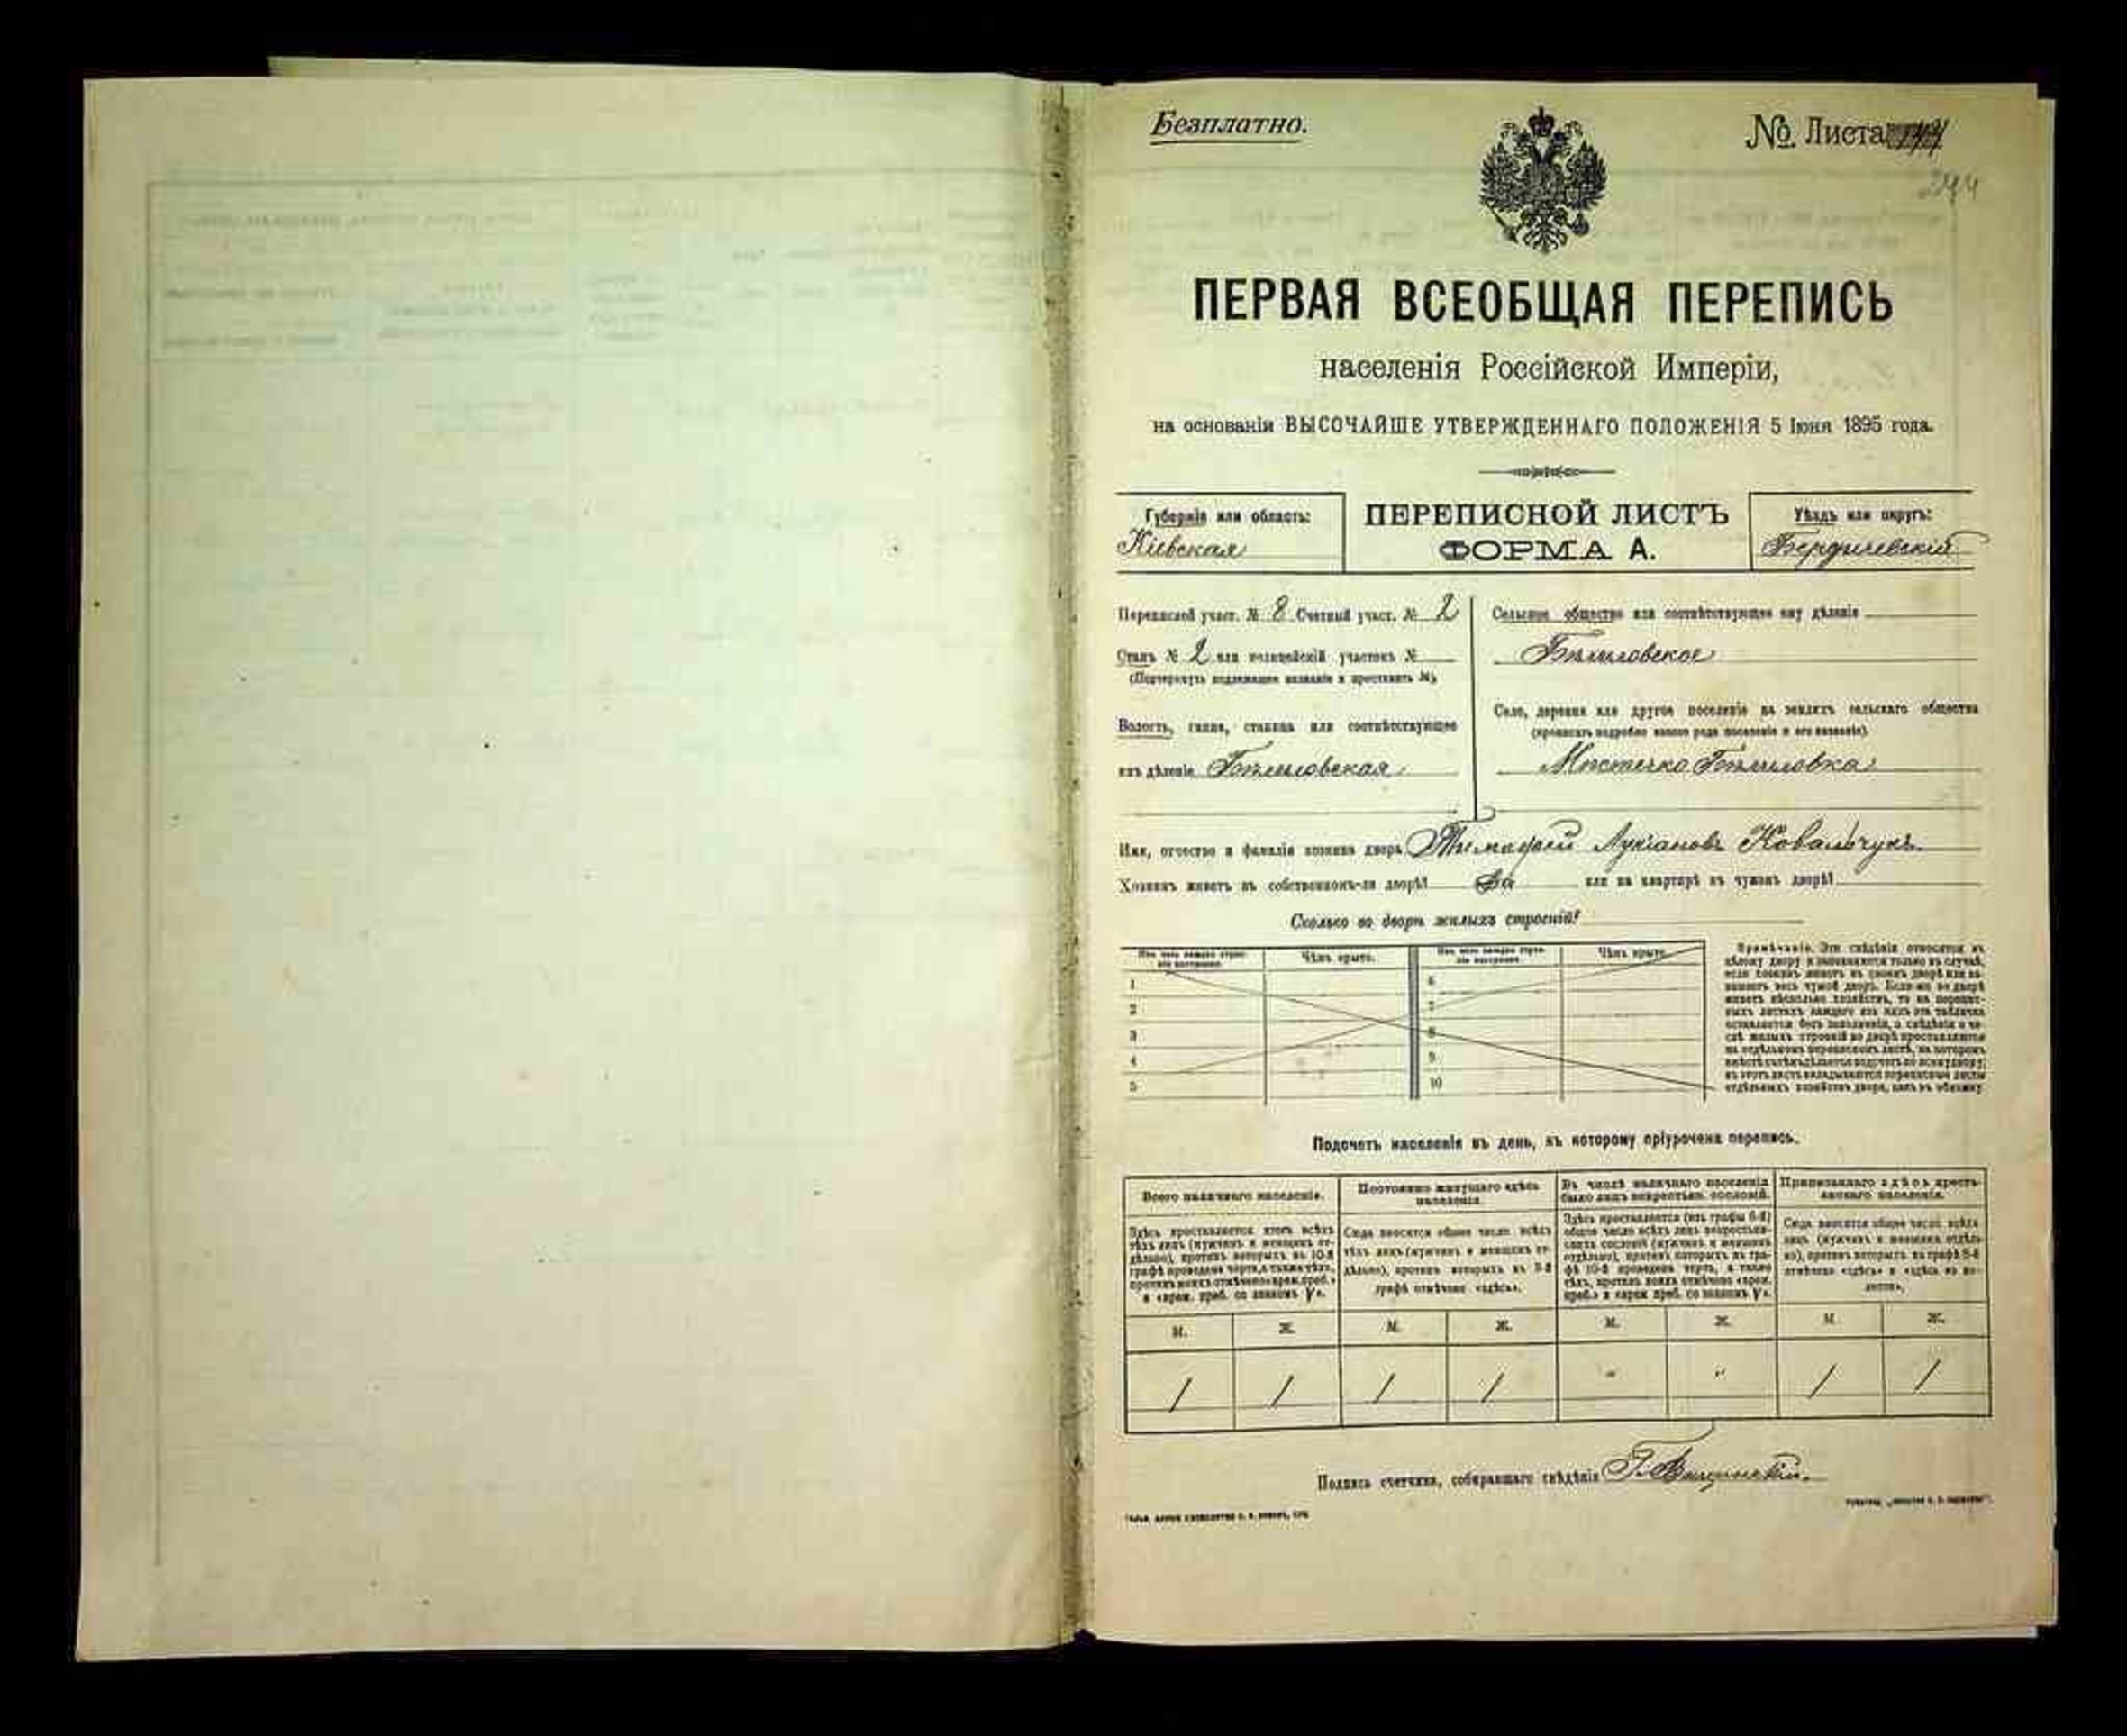 Безплатно.
№ Листа
274
ПЕРВАЯ ВСЕОБЩАЯ ПЕРЕПИСЬ
населенія Россійской Имперіи,
на основаніи ВЫСОЧАЙШЕ УТВЕРЖДЕННАГО ПОЛОЖЕНІЯ 5 Іюня 1895 года.
Губернія или область:
Кіевская
ПЕРЕПИСНОЙ ЛИСТЪ
ФОРМА А.
Уѣздъ или округъ:
Бердичевскій
Переписной участ. № 8 Счетный участ. № 2
Станъ № 2 или полицейскій участокъ №
(Подчеркнуть подлежащее названіе и проставить №).
Волость, гмина, станица или соотвѣтствующее
имъ дѣленіе Бѣлиловская
Сельское общество или соотвѣтствующее ему дѣленіе
Бѣлиловское
Село, деревня или другое поселеніе на земляхъ сельскаго общества
(прописать подробно какого рода поселеніе и его названіе).
Мѣстечко Бѣлиловка
Имя, отчество и фамилія хозяина двора Тимофей Лукіановъ Ковальчукъ
Хозяинъ живетъ въ собственномъ-ли дворѣ? Да или на квартирѣ въ чужомъ дворѣ?
Сколько во дворѣ жилыхъ строеній?
Изъ чего каждое строеніе построено.
Чѣмъ крыто.
Изъ чего каждое строеніе построено.
Чѣмъ крыто.
1
2
3
4
5
6
7
8
9
10
Примѣчаніе. Эти свѣдѣнія относятся къ
цѣлому двору и заполняются только въ случаѣ,
если хозяинъ живетъ въ своемъ дворѣ или за-
нимаетъ весь чужой дворъ. Если-же во дворѣ
живетъ нѣсколько хозяйствъ, то на перепис-
ныхъ листахъ каждаго изъ нихъ эта табличка
оставляется безъ заполненія, а свѣдѣнія о чи-
слѣ жилыхъ строеній во дворѣ проставляются
на отдѣльномъ переписномъ листѣ, на которомъ
вмѣстѣ съ тѣмъ дѣлается подсчетъ по всему двору;
въ этотъ листъ вкладываются переписные листы
отдѣльныхъ хозяйствъ двора, какъ въ обложку.
Подсчетъ населенія въ день, къ которому пріурочена перепись.
Всего наличнаго населенія.
Здѣсь проставляется итогъ всѣхъ
тѣхъ лицъ (мужчинъ и женщинъ от-
дѣльно), противъ которыхъ въ 10-й
графѣ проведена черта, а также тѣхъ,
противъ коихъ отмѣчено «врем. преб.»
и «врем. преб. со знакомъ V».
Постоянно живущаго здѣсь
населенія.
Сюда вносится общее число всѣхъ
тѣхъ лицъ (мужчинъ и женщинъ от-
дѣльно), противъ которыхъ въ 9-й
графѣ отмѣчено «здѣсь».
Въ числѣ наличнаго населенія
было лицъ некрестьян. сословій.
Здѣсь проставляется (изъ графы 6-й)
общее число всѣхъ лицъ некрестьян-
скихъ сословій (мужчинъ и женщинъ
отдѣльно), противъ которыхъ въ гра-
фѣ 10-й проведена черта, а также
тѣхъ, противъ коихъ отмѣчено «врем.
преб.» и «врем. преб. со знакомъ V».
Приписаннаго здѣсь кресть-
янскаго населенія.
Сюда вносится общее число всѣхъ
лицъ (мужчинъ и женщинъ отдѣль-
но), противъ которыхъ въ графѣ 8-й
отмѣчено «здѣсь» и «здѣсь въ во-
лости».
М. Ж. М. Ж. М. Ж. М. Ж.
1 1 1 1 " " 1 1
Подпись счетчика, собиравшаго свѣдѣнія